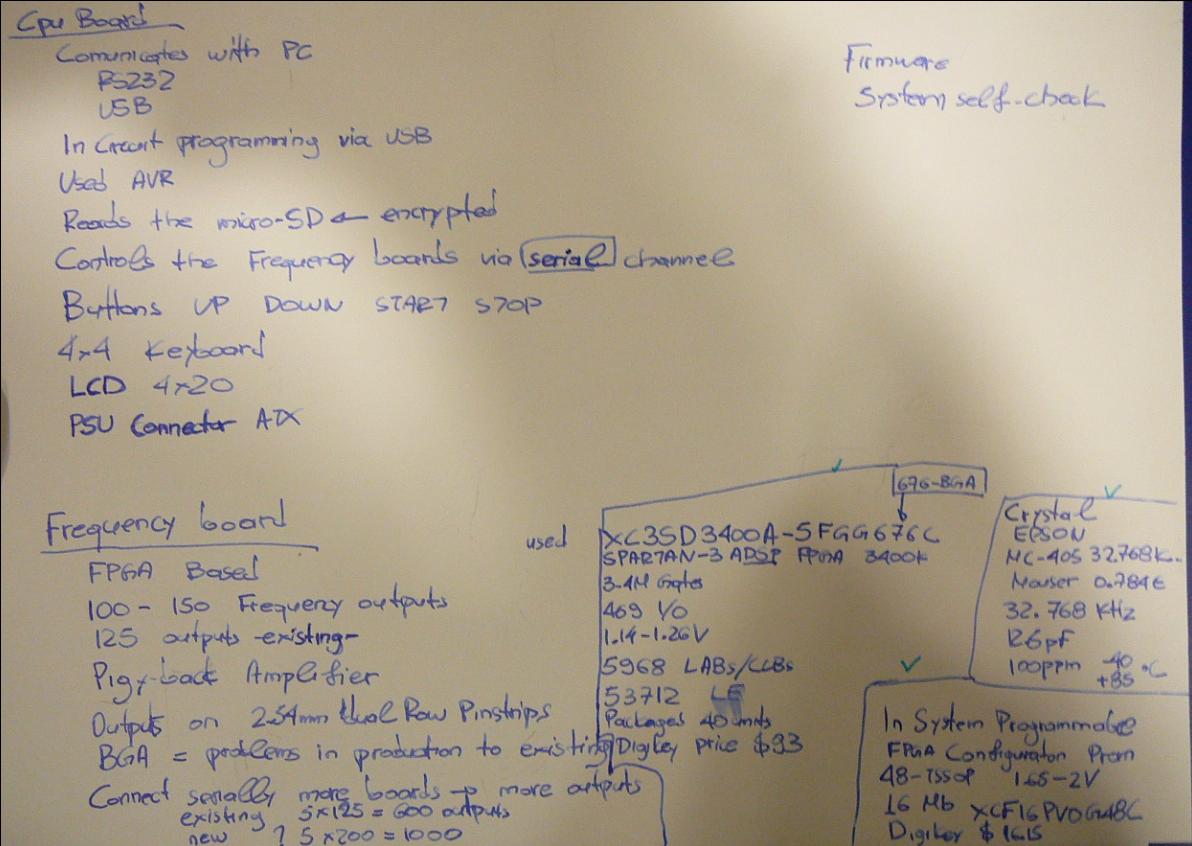 Cpu Board
Comunicates with PC
RS232
USB
In Circuit programming via USB
Used AVR
Reads the micro-SD ← encrypted
Controls the Frequency boards via serial channel
Buttons UP DOWN START STOP
4x4 Keyboard
LCD 4x20
PSU Connector ATX
Firmware
System self-check
Frequency board
FPGA Based
100 - 150 Frequency outputs
125 outputs -existing-
Pigy-back Amplifier
Outputs on 2.54mm Dual Row Pinstrips
BGA = problems in production to existing
Connect serially more boards → more outputs
existing 5x125 = 600 outputs
new ? 5x200 = 1000
used
676-BGA
XC3SD3400A-5FGG676C
SPARTAN-3 ADSP FPGA 3400K
3.4M Gates
469 I/O
1.14-1.26V
5968 LABs/CLBs
53712
Packages 40
Digikey price $93
Crystal
EPSON
MC-405 32.768K..
Mouser 0.784€
32.768 KHz
12.6pF
100ppm -40 +85 °C
In System Programmable
FPGA Configuration Prom
48-TSSOP 1.65-2V
16 Mb XCF16PVOG48C
Digikey $ 16.15